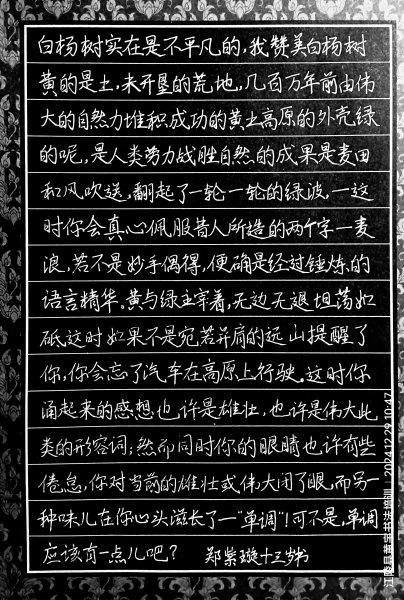 白杨树实在是不平凡的，我赞美白杨树
黄的是土，未开垦的荒地，几百万年前由伟
大的自然力堆积成功的黄土高原的外壳绿
的呢，是人类劳力战胜自然的成果是麦田
和风吹送，翻起了一轮一轮的绿波，一这
时你会真心佩服昔人所造的两个字一麦
浪，若不是妙手偶得，便确是经过锤炼的
语言精华。黄与绿主宰着，无边无退坦荡如
砥这时如果不是宛若并肩的远山提醒了
你，你会忘了汽车在高原上行驶。这时你
涌起来的感想也许是雄壮，也许是伟大此
类的形容词；然而同时你的眼睛也许有些
倦怠，你对当前的雄壮或伟大闭了眼，而另一
种味儿在你心头滋长了一"单调"！可不是，单调
应该有一点儿吧？ 郑紫璇十三岁书
江陵县善宝书法培训 2024.12.29 10:47